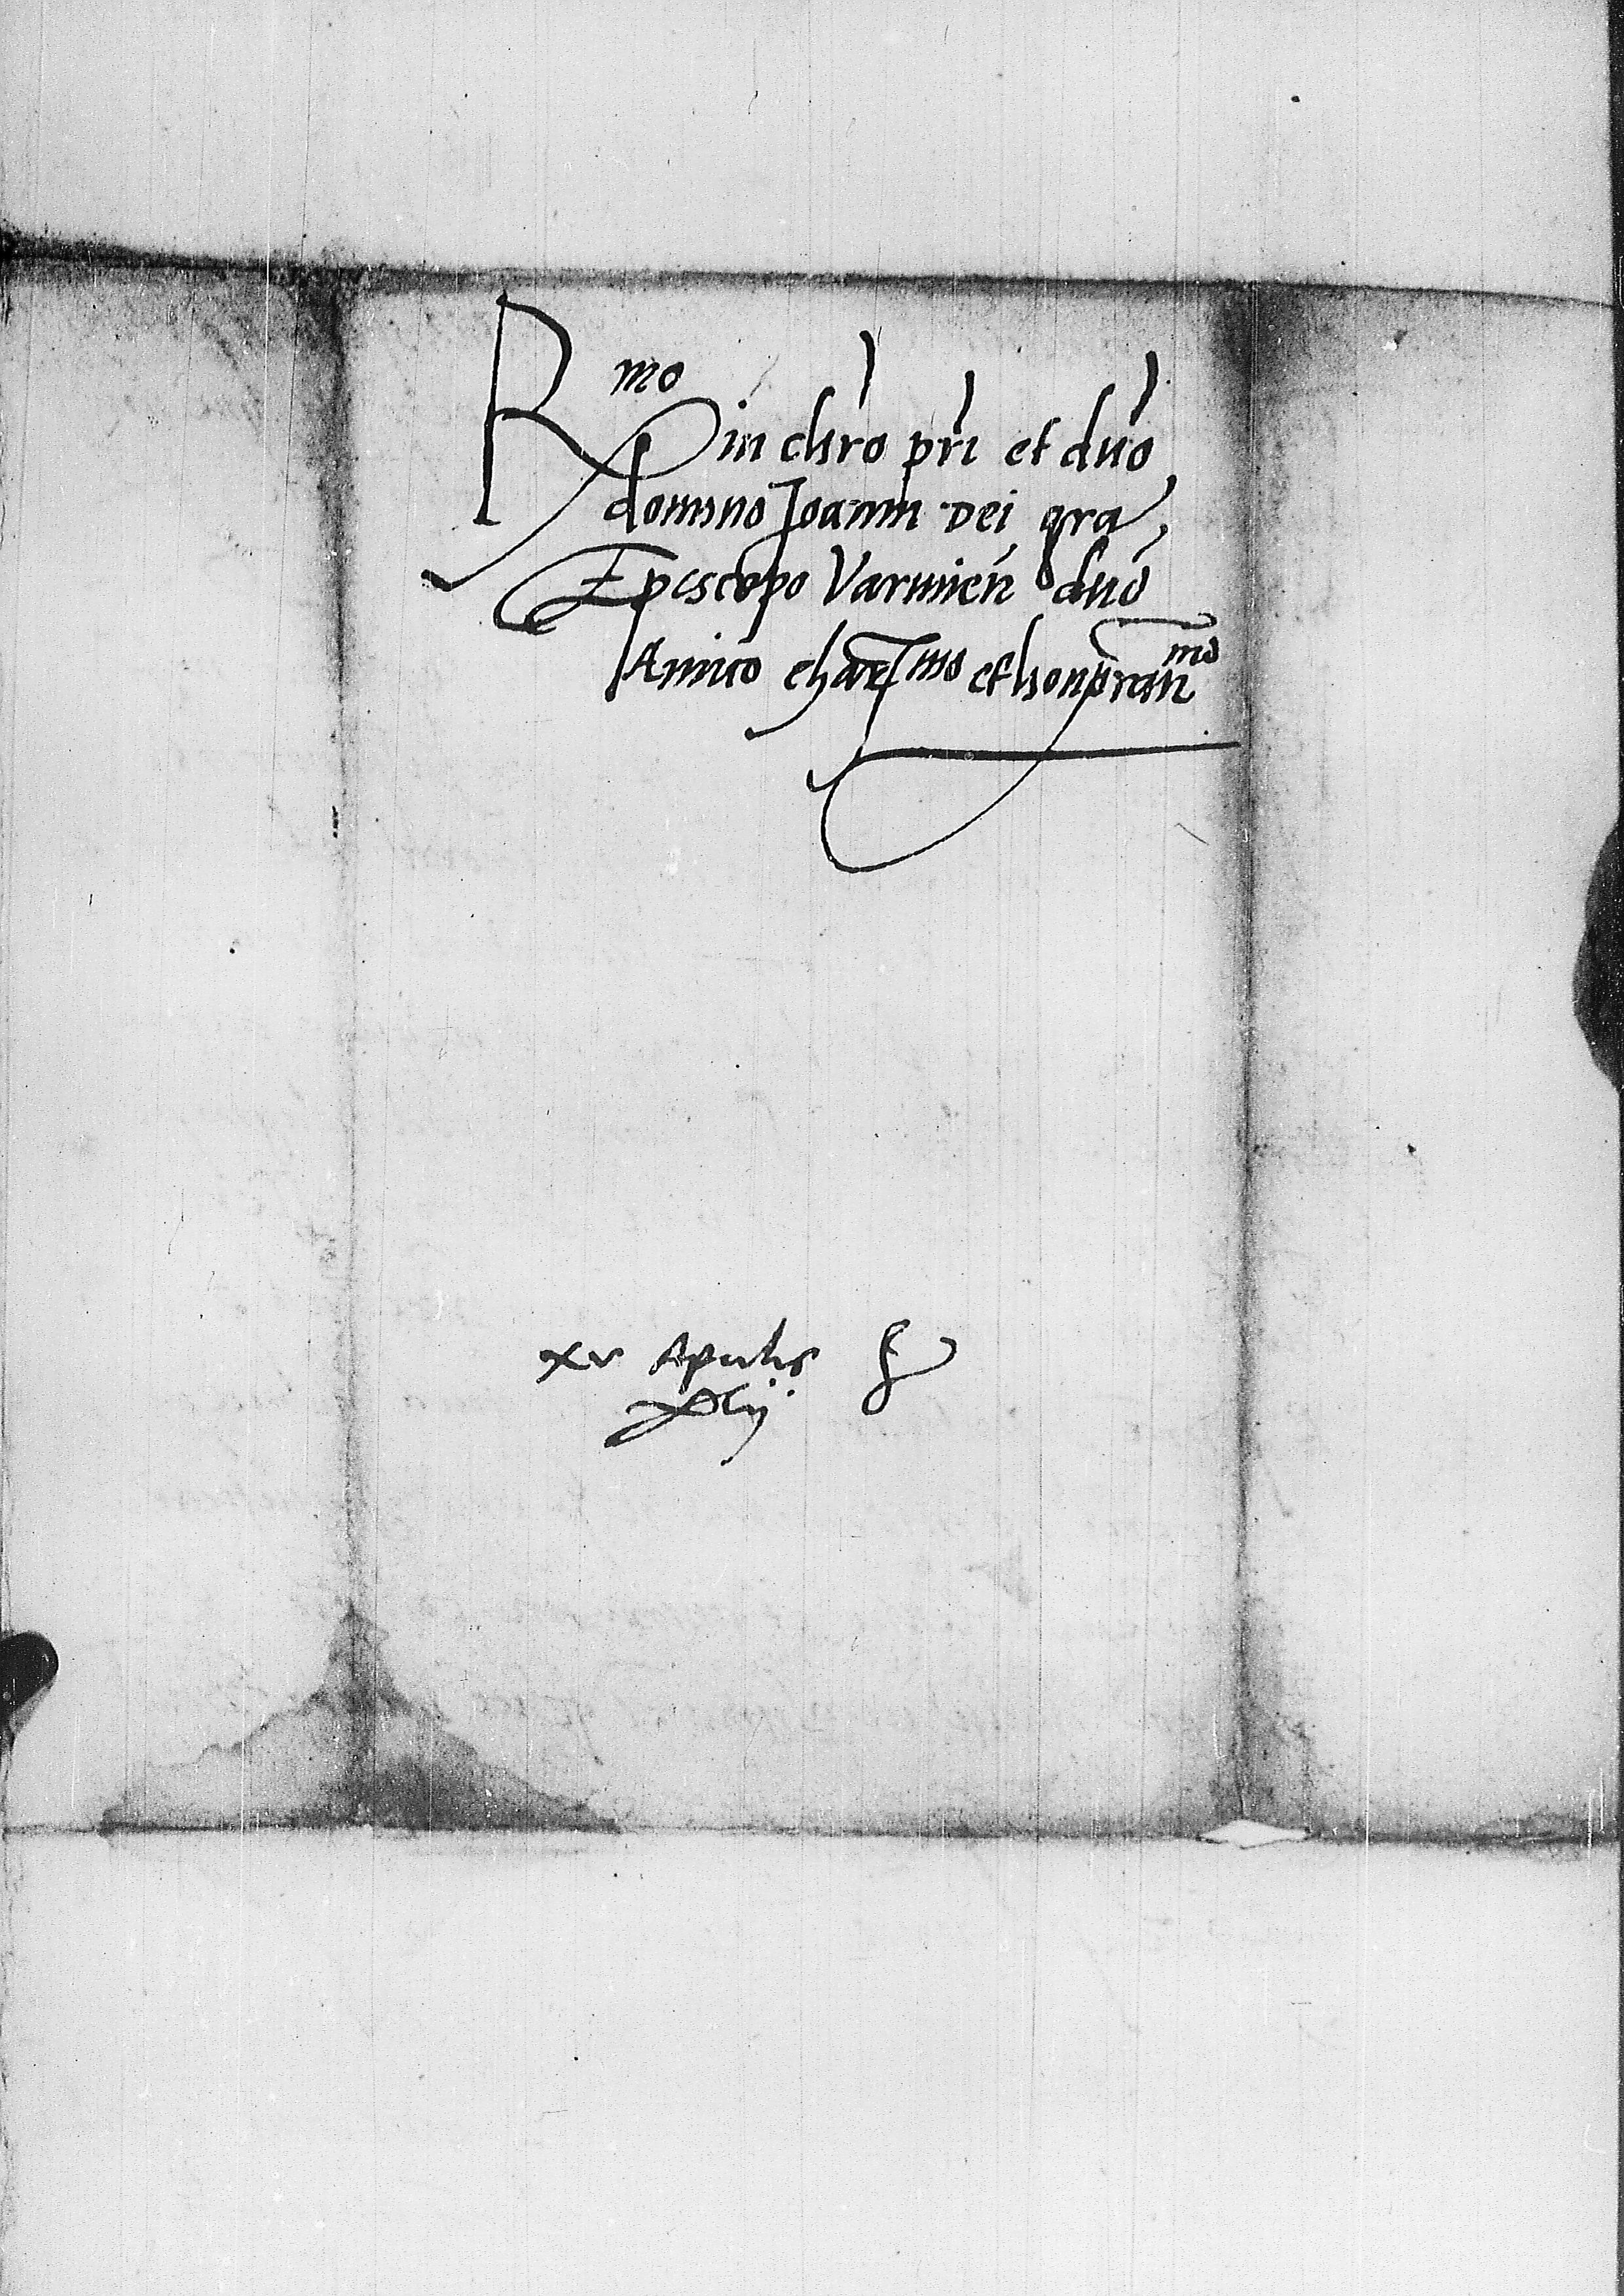 Rmo in chro pri et dno
domino Joanni Dei gra
Episcopo Varmien dno
Amico charmo et honorandmo
xv Aprilis
xlij